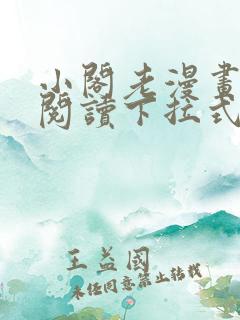 小閣老漫畫
閱讀下拉式
王益國
未經同意禁止轉載